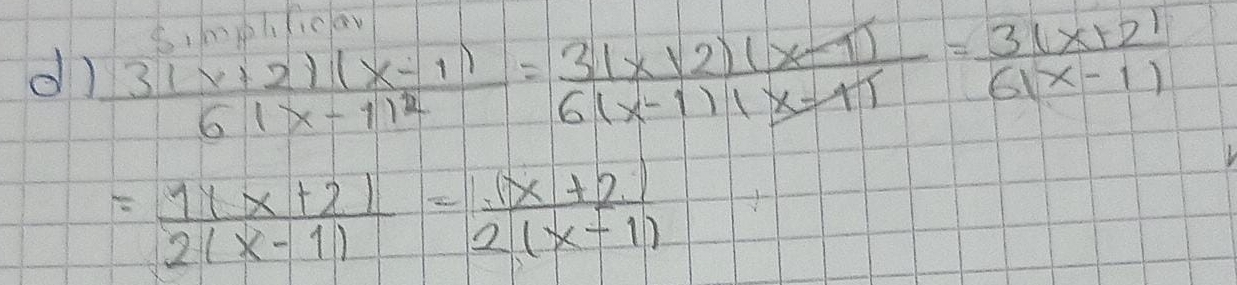 Simplificar
d) 3(x+2)(x-1) / 6(x-1)² = 3(x+2)(x-1) / 6(x-1)(x-1) = 3(x+2) / 6(x-1)
= 1(x+2) / 2(x-1) = (x+2) / 2(x-1)